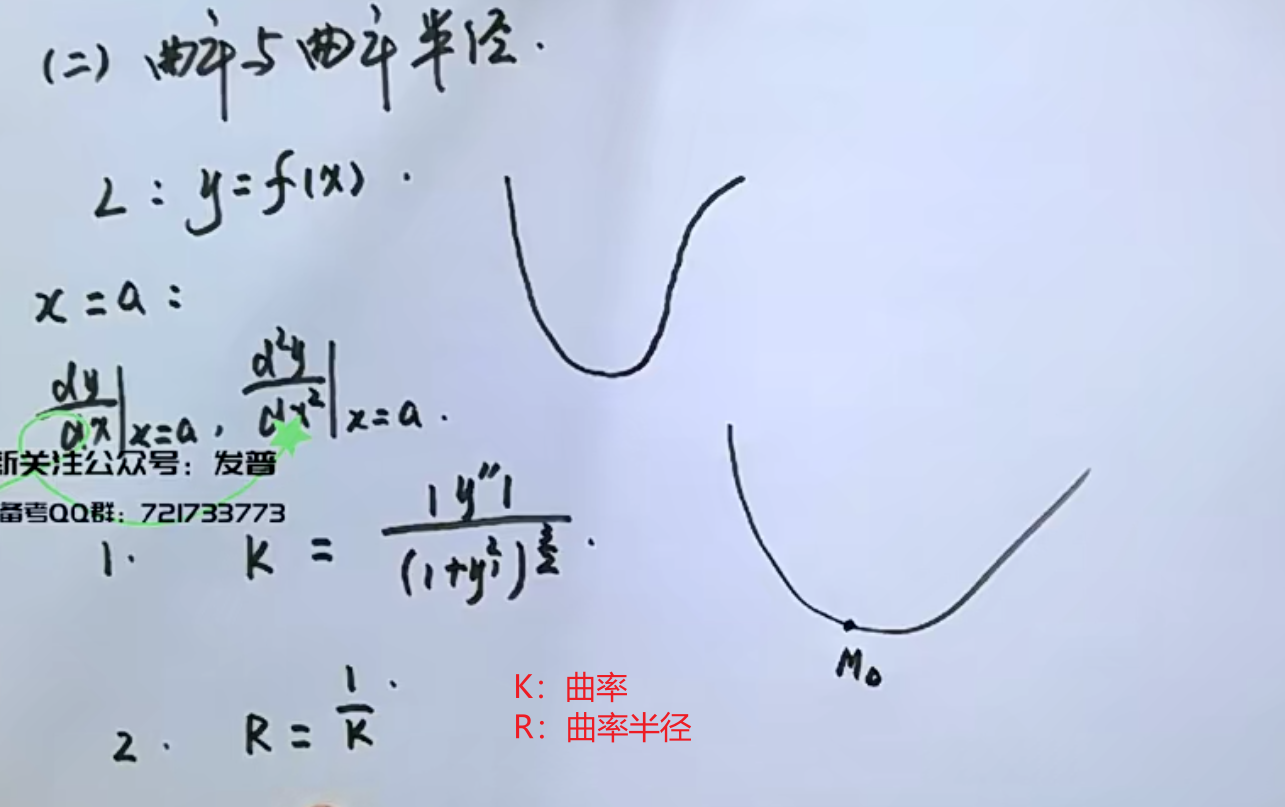 (二) 曲率与曲率半径.
L: y=f(x).
x=a:
dy/dx|x=a, d²y/dx²|x=a.
新关注公众号:发普
备考QQ群:721733773
1. K = |y″|/(1+y′²)^(3/2).
M₀
2. R = 1/K.
K:曲率
R:曲率半径